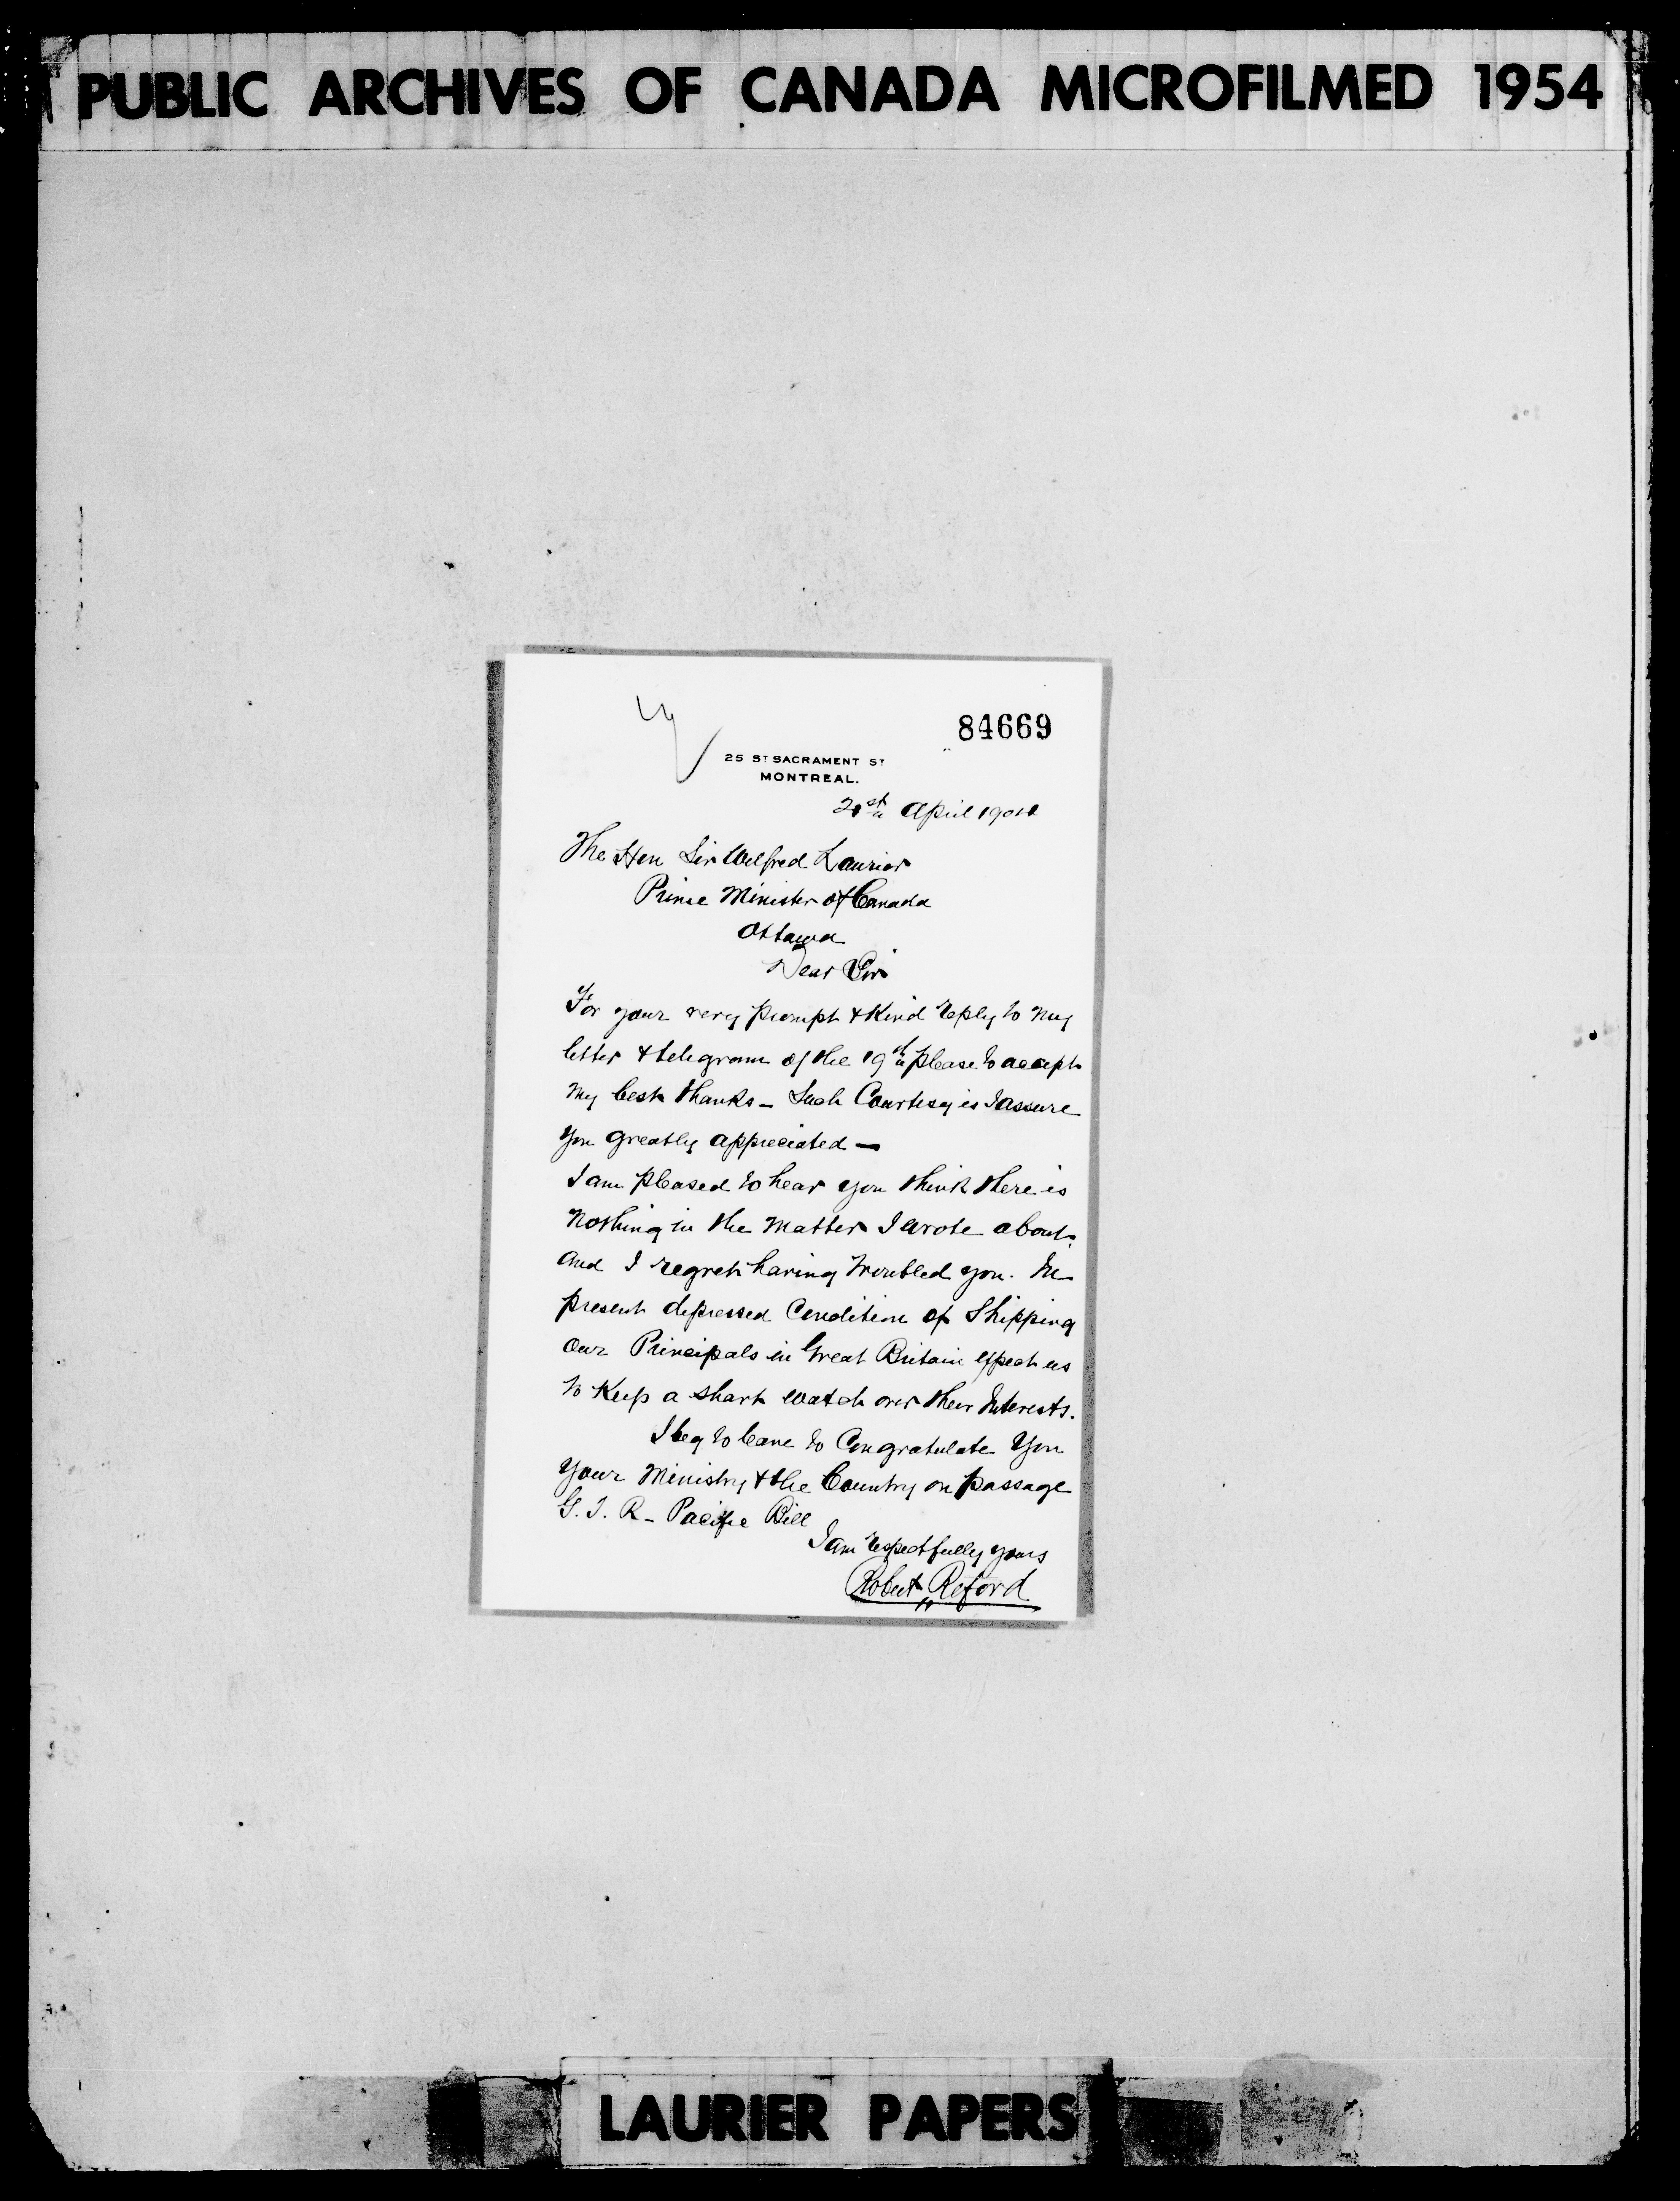 PUBLIC ARCHIVES OF CANADA MICROFILMED 1954
84669
25 ST SACRAMENT ST
MONTREAL.
21st April 1904
The Hon Sir Wilfred Laurier
Prime Minister of Canada
Ottawa
Dear Sir
For your very prompt & Kind reply to my
letter & telegram of the 19th please to accept
my best thanks - Such Courtesy is I assure
you greatly appreciated -
I am pleased to hear you think there is
nothing in the matter I wrote about.
and I regret having troubled you. In
present depressed Condition of Shipping
our Principals in Great Britain expect us
to Keep a sharp watch over their Interests.
I beg to leave to Congratulate You
Your Ministry & the Country on passage
G. T. R - Pacific Bill
I am respectfully yours
Robert Reford
LAURIER PAPERS